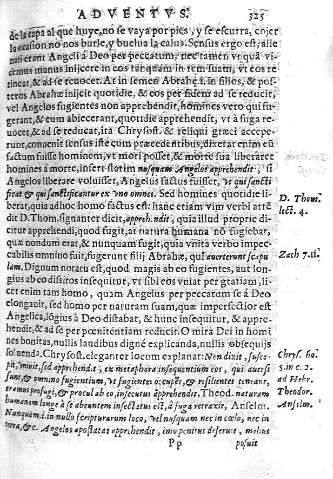 ADVENTVS. 325
de la capa al que huye, no se vaya por pies, y se escurra, cojer
la ocasion no nos burle, y buelua la calua. Sensus ergo est, alie
nati erant Angeli à Deo per peccatum, nec tamen vt quâ vi-
demus manus inijcere in eos tanquam in rem suam, vt eos re
tineat, & ad se reuocet. At in semen Abrahę, i. in filios, & poste-
ros Abrahæ inijcit quotidie, & eos per fidem ad se reducit,
vel Angelos fugientes non apprehendit, homines vero qui fu-
gerant, & eum abiecerant, quotidie apprehendit, vt à fuga re-
uocet, & ad se reducat, ita Chrysost. & reliqui græci accepe-
runt, conuenit sensus iste cum præcedentibus, dixerat enim eū
factum fuisse hominem, vt mori posset, & morte sua liberaret
homines á morte, inserit statim nusquam Angelos apprehendit, si
Angelos liberare voluisset, Angelus factus fuisset, vt qui sancti
ficat & qui sanctificantur ex vno omnes. Sed homines quotidie li-
berat, quia adhoc homo factus est: hanc etiam vim verbi attē
dit D. Thom. signanter dicit, apprehendit, quia illud proprie di
citur apprehendi, quod fugit, at natura humana nō fugiebat,
quæ nondum erat, & nunquam fugit, quia vnita verbo impe-
cabilis omnino fuit, fugerunt filij Abrahæ, qui auerterunt scapu
lam. Dignum notatu est, quod magis ab eo fugientes, aut lon-
gius ab eo dissitos insequitur, vt sibi eos vniat per gratiam, li-
cet enim tam homo, quam Angelus per peccatum se á Deo
elongauit, sed homo per naturam suam, quæ imperfectior est
Angelica, lōgius à Deo distabat, & hunc insequitur, & appre-
hendit, & ad se per pœnitentiam reducit. O mira Dei in homi
nes bonitas, nullis laudibus digné explicanda, nullis obsequijs
soluenda. Chrysost. eleganter locum explanat: Non dixit, susce-
pit, vniuit, sed apprehendit, ex metaphora insequentium eos, qui auersi
sunt, & omnino fugientium, vt fugientes occupet, & resilientes teneant,
transmes profugi, & procul ab eo, insecutus apprehendit, Theod. naturam
humanam longè à se abeuntem insectatus est, à fuga retraxit, Anselm.
Nunquam. i. in nullo scripturarum loco, vel nusquam nec in cœlo, nec in
terra, &c. Angelos apostatas apprehendit, imo penitus deseruit, melius
Pp posuit
D. Thom.
lect. 4.
Zach 7. 11.
Chrys. ho.
5. in c. 2.
ad Hebr.
Theodor.
Anselm.